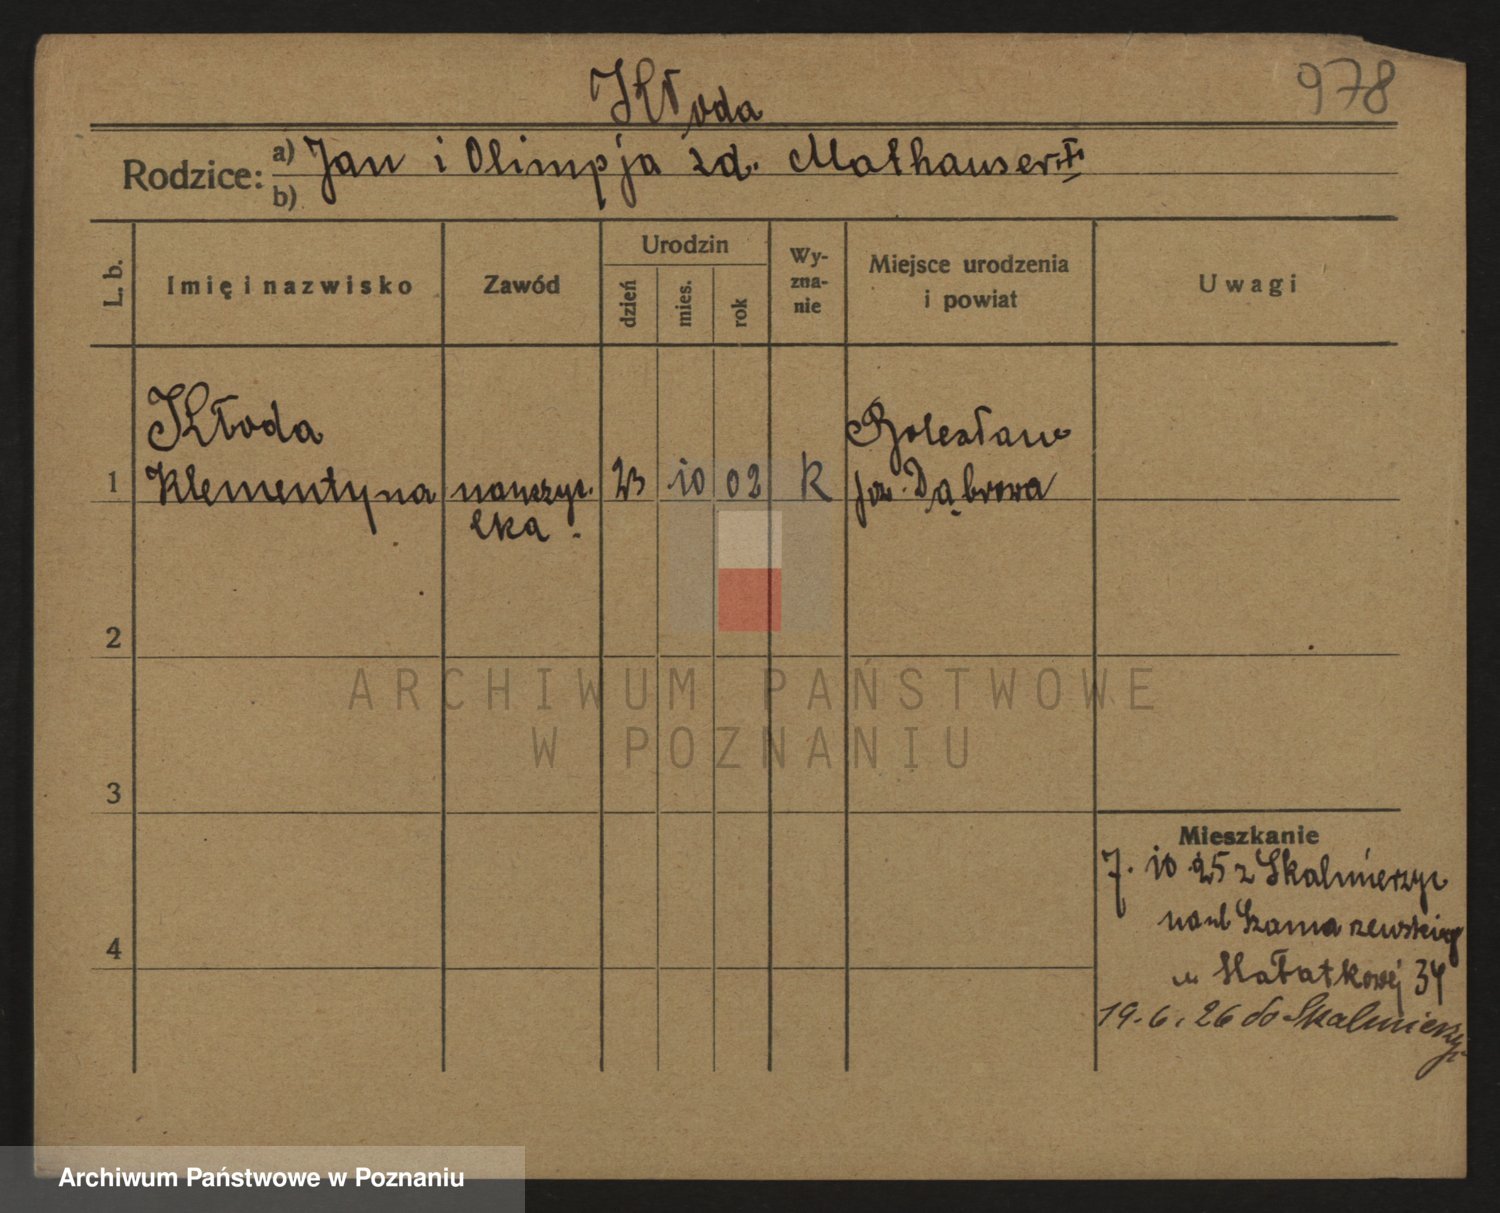 Kłoda
978
Rodzice: a) Jan i Olimpja zd. Mathauser
b)
L. b.
Imię i nazwisko
Zawód
Urodzin
dzień
mies.
rok
Wy-
zna-
nie
Miejsce urodzenia
i powiat
Uwagi
Kłoda
Klementyna
1
nauczyc.
elka.
23
10
02
K
Bolesław
pow. Dąbrowa
2
ARCHIWUM PAŃSTWOWE
W POZNANIU
3
4
Mieszkanie
7. 10 25 z Skalmierzyc
Szamarzewskieg
u Hałatkowej 34
19. 6. 26 do Skalmierzyc
Archiwum Państwowe w Poznaniu